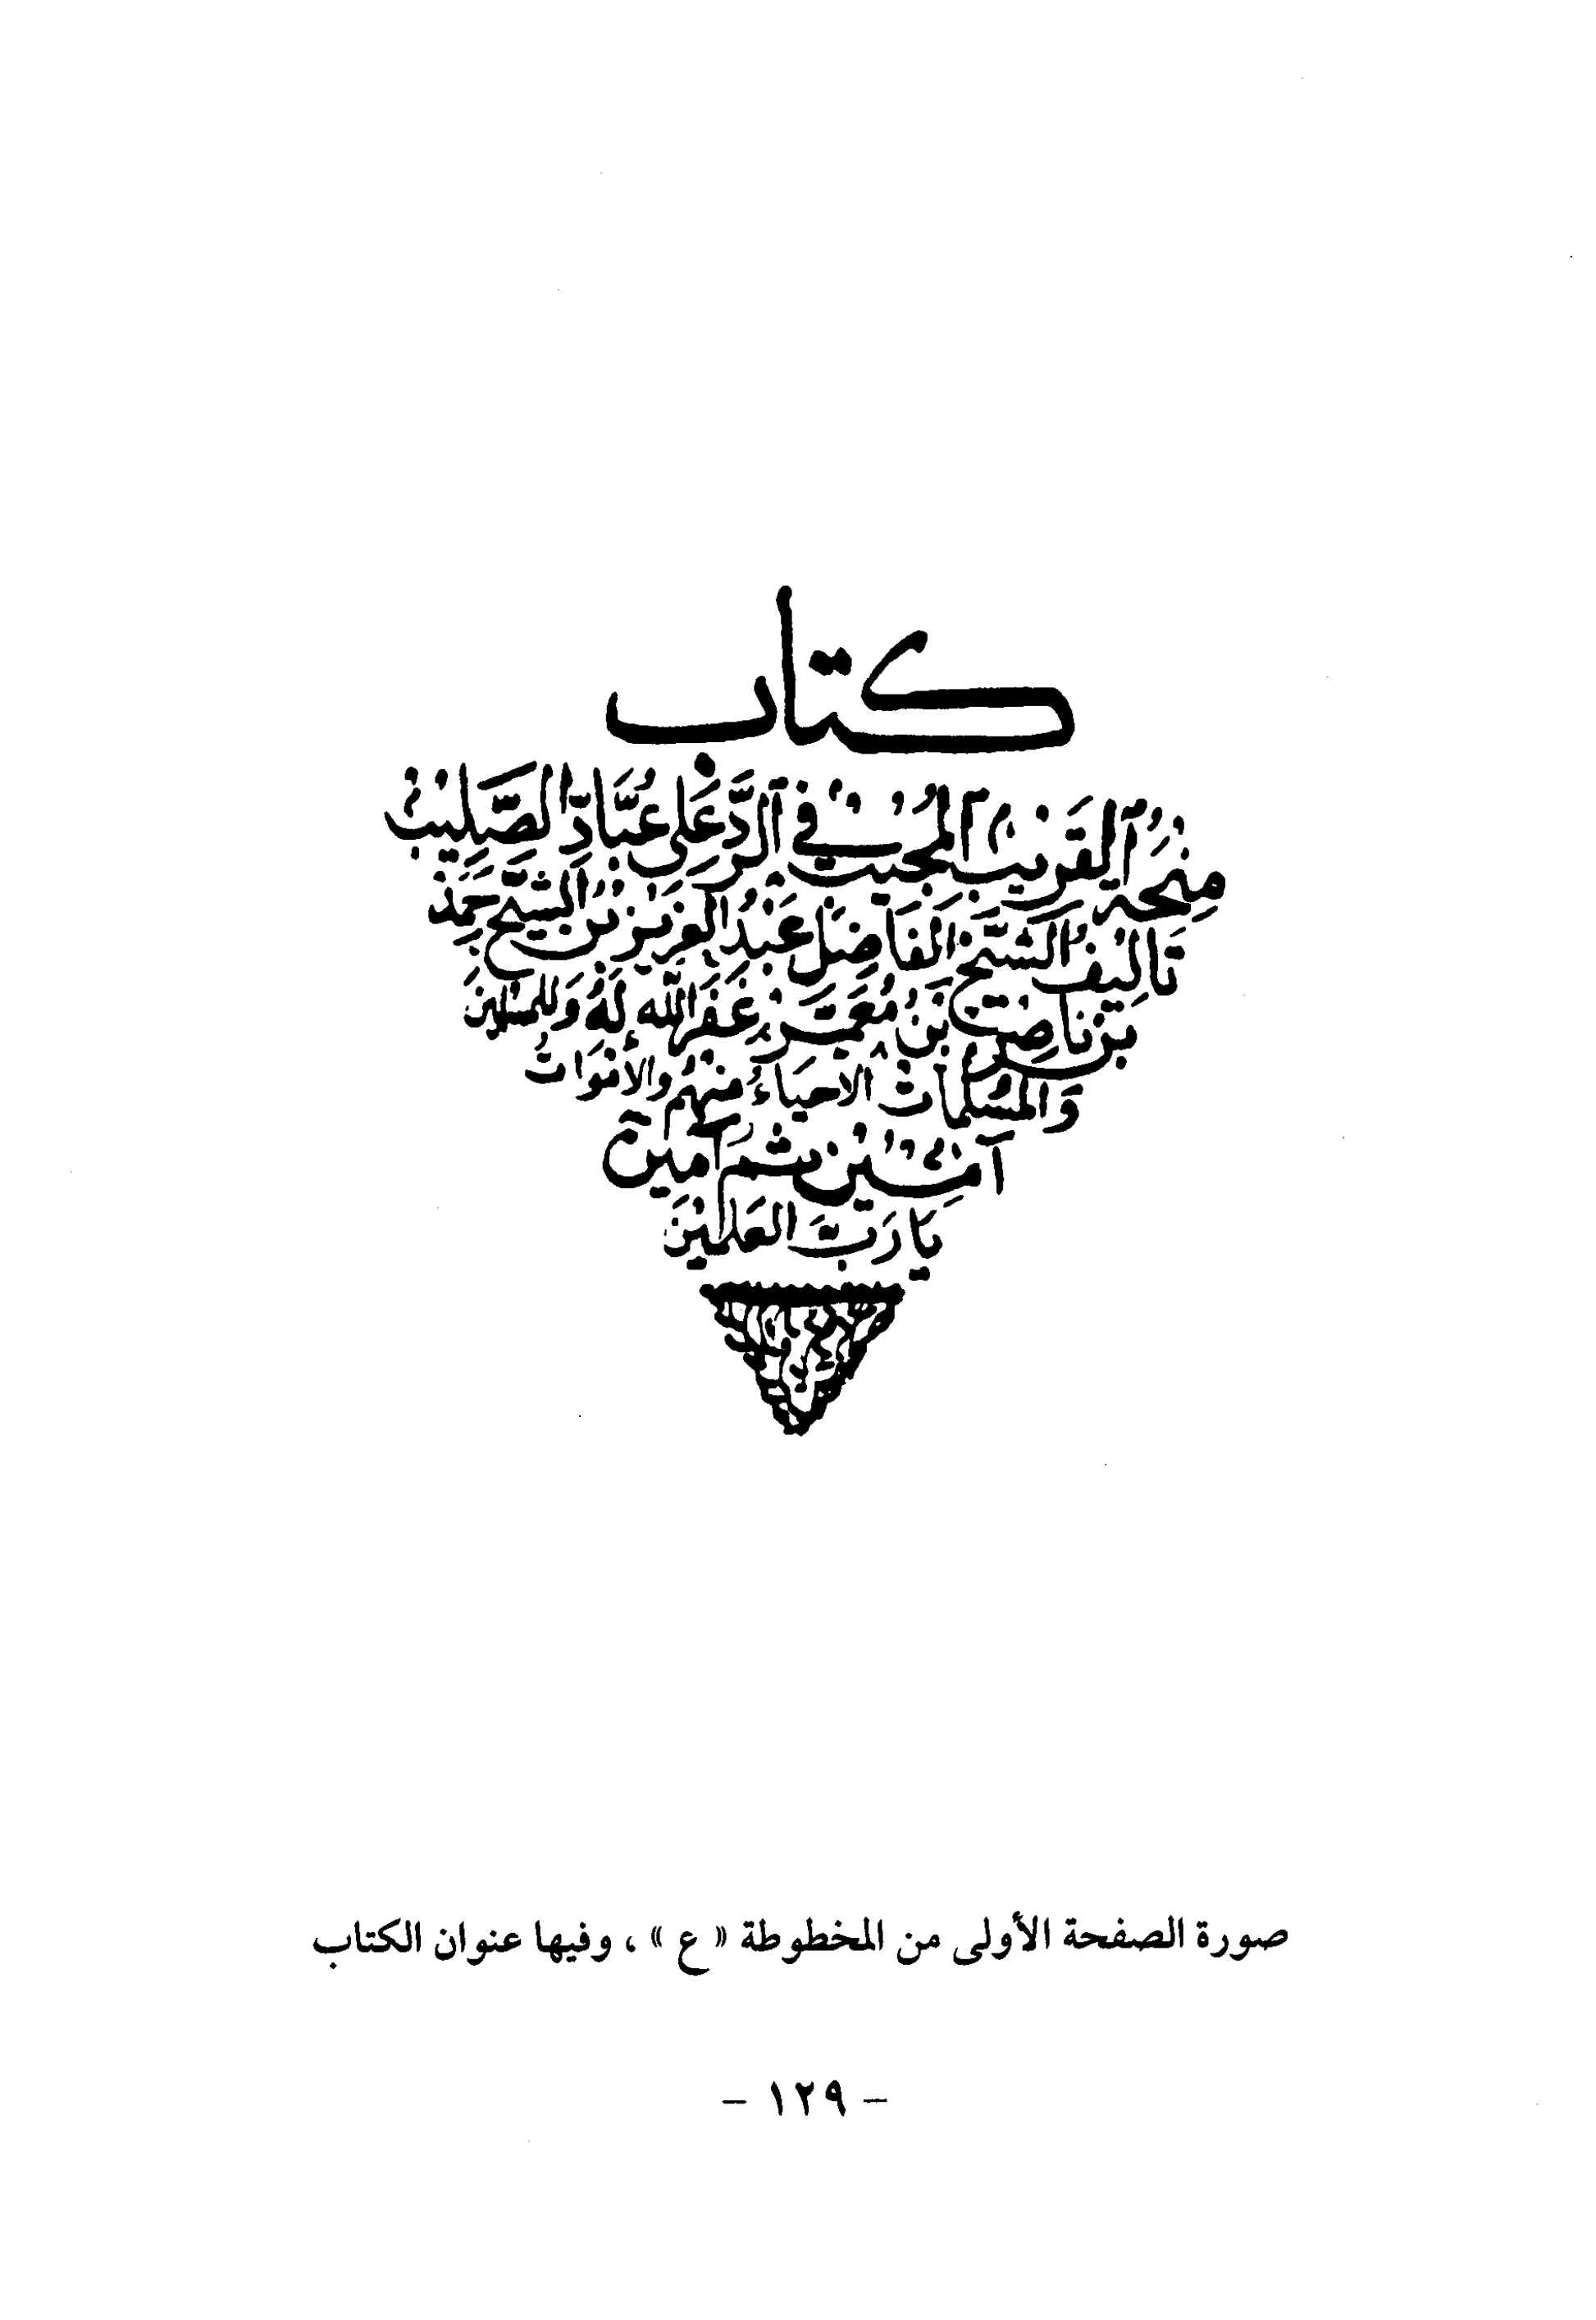 كتاب
مِنْحَةُ الْقَرِيْبِ الْمُجِيْبِ في الرَّدِّ عَلَى عُبَّادِ الصَّلِيْبْ
تَالِيْفُ الشَّيْخِ الْفَاضِلِ عَبْدُ الْعَزِيْزِ بْنِ الشَّيْخِ حَمَدْ
بِنْ نَاصِرْ بْنِ مُعَمَّرْ غَفَرَ اللّٰه لَهُ وَلِلمُسْلِمِيْنَ
وَالمُسْلِمَاتْ الاحيَاءُ مِنْهُمْ وَالأَمْوَاتْ
آمِيْنْ ثُمَ آمِينْ
يَا رَبَّ الْعَلَمِيْنَ
صورة الصفحة الأولى من المخطوطة « ع » ، وفيها عنوان الكتاب
- ١٢٩ -